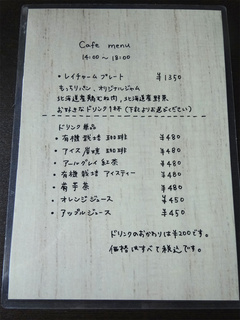 Cafe menu
14:00 ~ 18:00
・レイチャーム プレート ¥1350
もっちりパン、オリジナルジャム
北海道産鶏むね肉、北海道産野菜
お好きなドリンク1杯 (下記よりお選びください)
ドリンク単品
・有機栽培 珈琲 ¥480
・アイス 珈琲 ¥480
・アールグレイ 紅茶 ¥480
・有機栽培 アイスティー ¥480
・茶 ¥480
・オレンジジュース ¥450
・アップルジュース ¥450
ドリンクのおかわりは¥200です。
価格はすべて税込です。